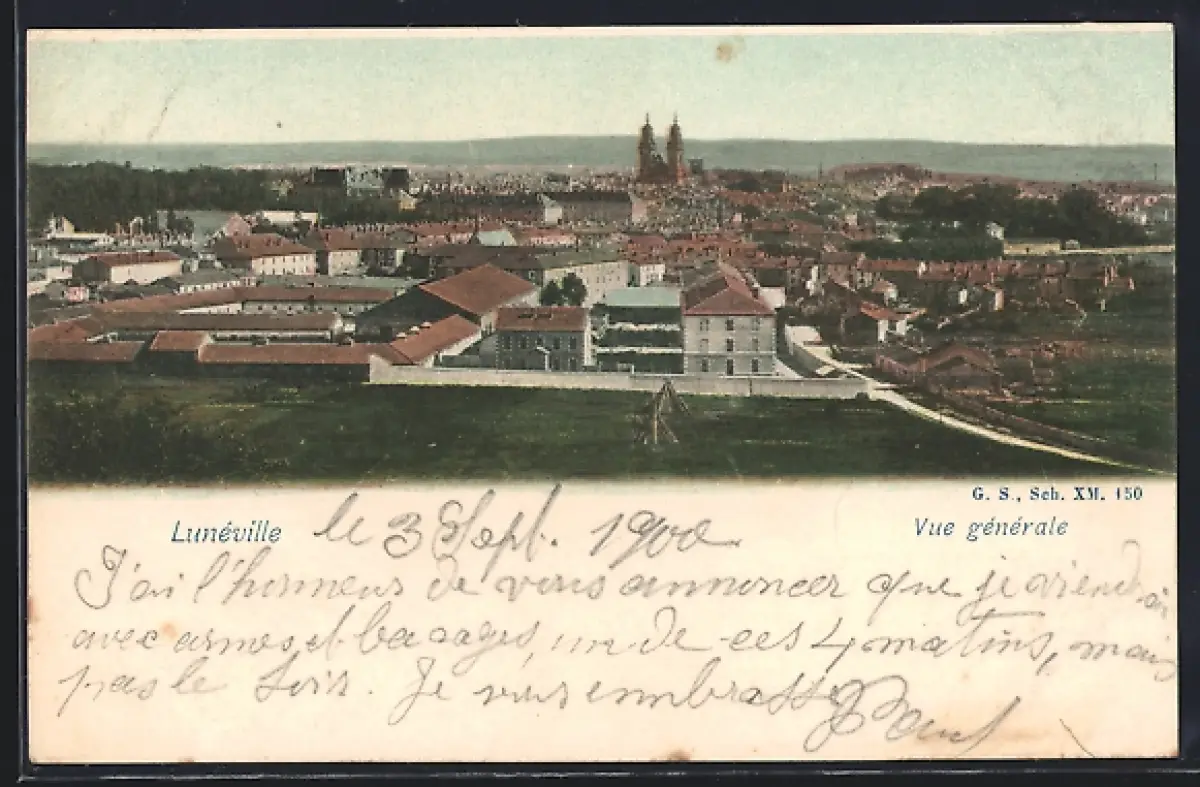 G. S., Sch. XM. 150
Lunéville le 3 Sept. 1900 Vue générale
J'ai l'honneur de vous annoncer que je viendrai
avec armes et bacages, un de ces 4 matins, mais
pas le soir. Je vous embrasse